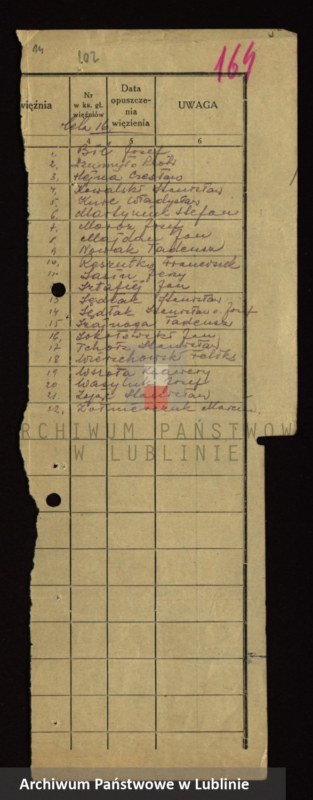 14
102
164
więźnia
Nr
w ks. gł.
więźniów
Data
opuszcze-
nia
więzienia
UWAGA
Cela 16
4 5 6
1. Bil Józef
2. Piotr
3. Hejna Czesław
4. Kowalski Stanisław
5. Kurc Władysław
6. Martyniuk Stefan
7. Mazur Józef
8. Majdan Jan
9. Nowak Tadeusz
10. Franciszek
11. Jasin Jerzy
12. Jan
13. Sędlak Stanisław
14. Sędlak Stanisław Józef
15. Tadeusz
16. Sokołowski Jan
17. Stanisław
18. Wierzchowski Feliks
19. Ksawery
20. Józef
21. Zając Stanisław
22. Marcin
ARCHIWUM PAŃSTWOWE
W LUBLINIE
Archiwum Państwowe w Lublinie